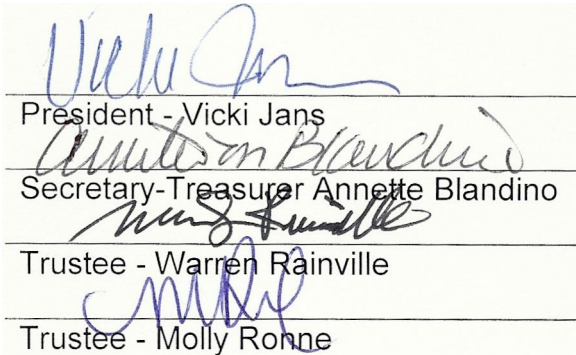 Vicki
President - Vicki Jans
Blandino
Secretary-Treasurer Annette Blandino
Rainville
Trustee - Warren Rainville
Trustee - Molly Ronne